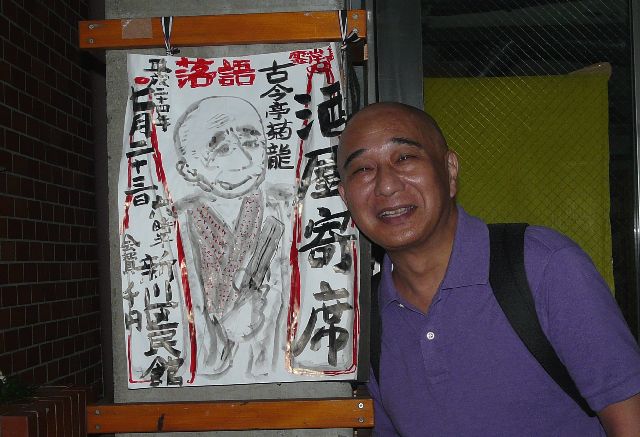 落語
酒屋寄席
古今亭菊龍
平成二十四年
七月二十三日
新川区民館
会費 千円